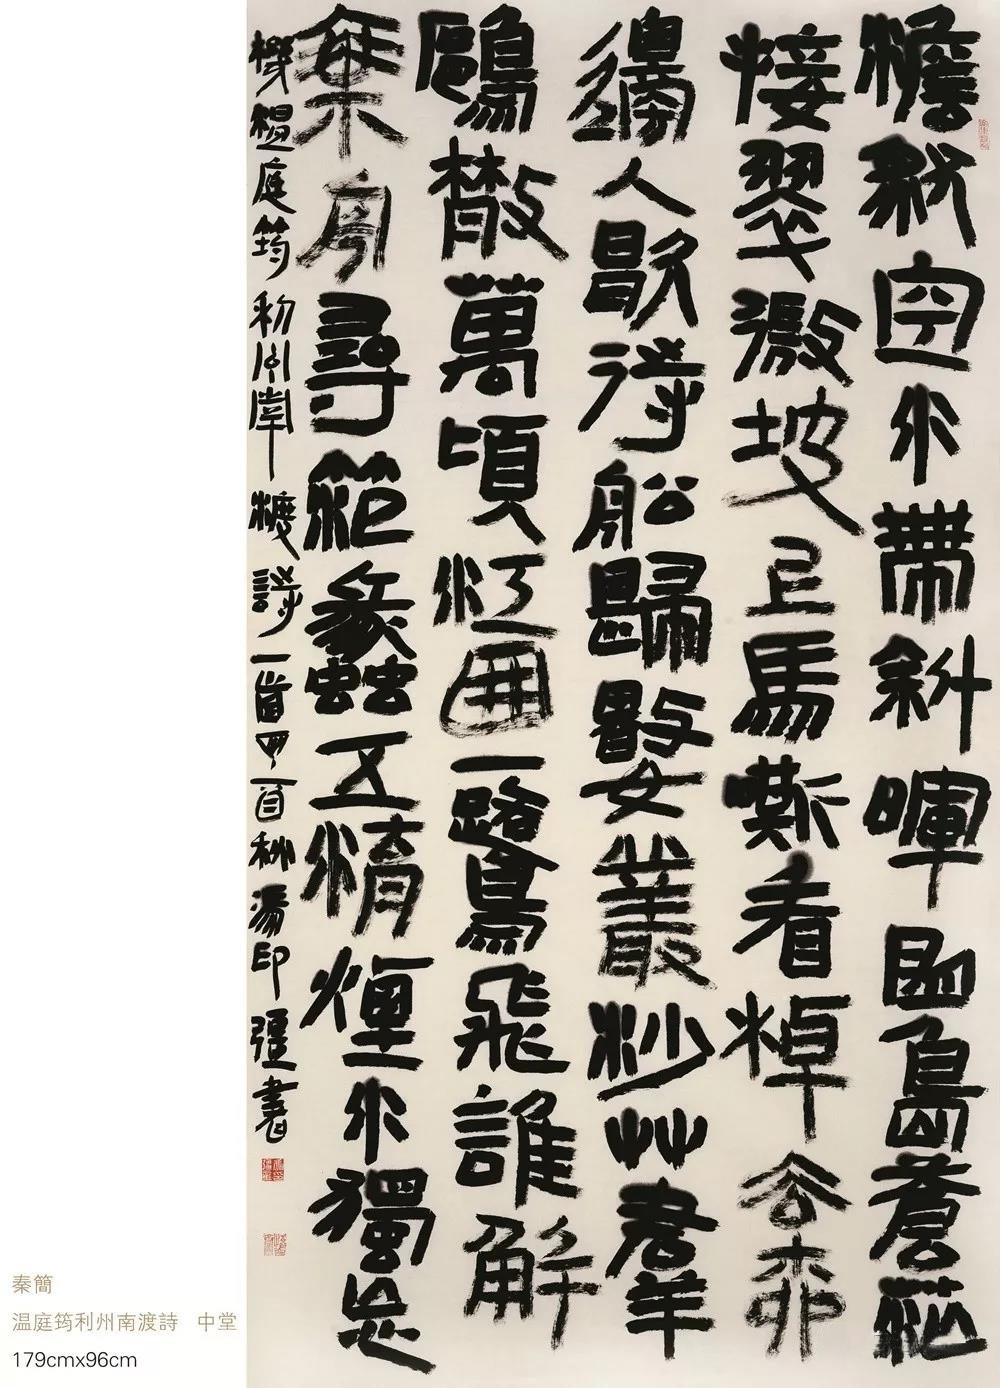 澹然空水帶斜暉曲島蒼茫
接翠微坡上馬嘶看棹去柳
邊人歇待船歸數叢沙草羣
鷗散萬頃江田一鷺飛誰解
乘舟尋范蠡五湖煙水獨忘
機溫庭筠利州南渡詩一首 秋湯印強書
秦簡
温庭筠利州南渡詩 中堂
179cmx96cm